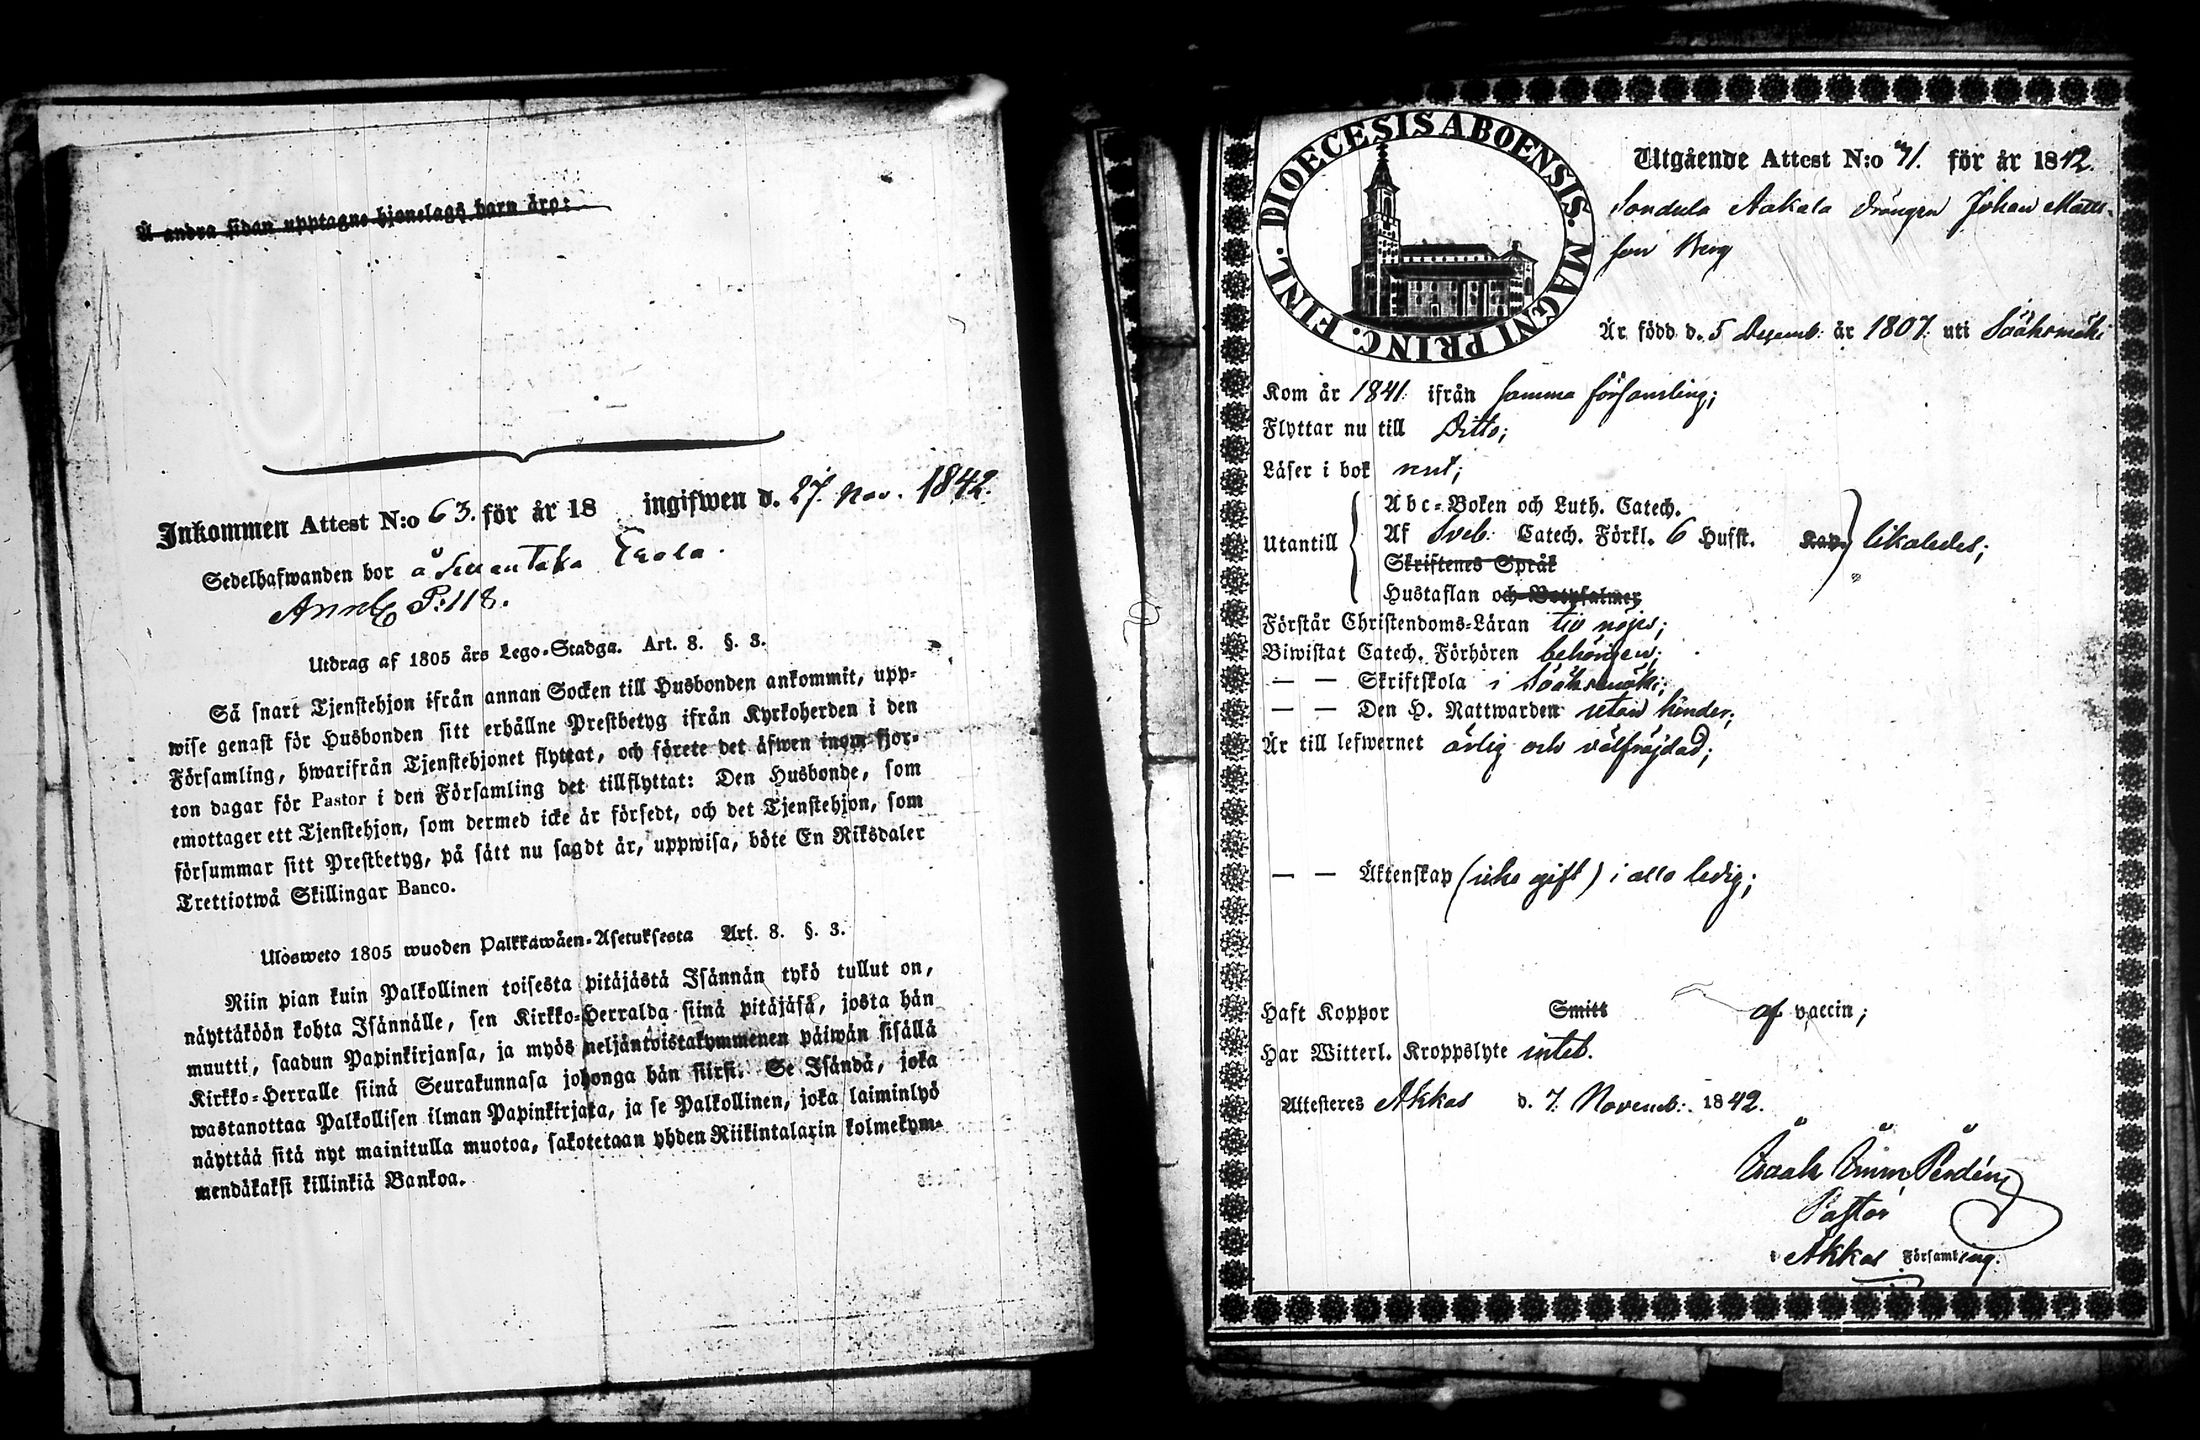 Å andra sidan upptagne hjonelags barn äro:
Inkommen Attest N:o 63. för år 18 ingifwen d. 27. Nov. 1842.
Sedelhafwanden bor å Erola.
P: 118.
Utdrag af 1805 års Lego-Stadga. Art. 8. §. 3.
Så snart Tjenstehjon ifrån annan Socken till Husbonden ankommit, upp-
wise genast för Husbonden sitt erhållne Prestbetyg ifrån Kyrkoherden i den
Församling, hwarifrån Tjenstehjonet flyttat, och förete det äfwen inom fjor-
ton dagar för Pastor i den Församling det tillflyttat: Den Husbonde, som
emottager ett Tjenstehjon, som dermed icke är försedt, och det Tjenstehjon, som
försummar sitt Prestbetyg, på sätt nu sagdt är, uppwisa, böte En Riksdaler
Trettiotwå Skillingar Banco.
Ulosweto 1805 wuoden Palkkawäen-Asetuksesta Art. 8. §. 3.
Niin pian kuin Palkollinen toisesta pitäjästä Isännän tykö tullut on,
näyttäköön kohta Isännälle, sen Kirkko-Herralda siinä pitäjäsä, josta hän
muutti, saadun Papinkirjansa, ja myös neljäntoistakymmenen päiwän sisällä
Kirkko-Herralle siinä Seurakunnasa johonga hän siirsi. Se Isändä, joka
wastanottaa Palkollisen ilman Papinkirjata, ja se Palkollinen, joka laiminlyö
näyttää sitä nyt mainitulla muotoa, sakotetaan yhden Riikintalarin kolmekym-
mendäkaksi killinkiä Bankoa.
DIOECESIS ABOENSIS. MAGNI PRINC. FINL.
Utgående Attest N:o 71. för år 1842.
Sondula Aakala Drängen Johan Matts-
son Berg
Är född d. 5 Decemb. år 1807. uti Sääksmäki
Kom år 1841. ifrån samma församling;
Flyttar nu till Ditto;
Läser i bok nut;
Utantill
Abc-Boken och Luth. Catech.
Af Sveb. Catech. Förkl. 6 Hufst. Kap. likaledes;
Skriftenes Språk
Hustaflan och Botpsalmer
Förstår Christendoms-Läran till nöjes;
Biwistat Catech. Förhören behörigen;
— — Skriftskola i Sääksmäki;
— — Den H. Nattwarden utan hinder;
Är till lefwernet ärlig och välfräjdad;
— — Äktenskap (icke gift) i allo ledig;
Haft Koppor Smitt af vaccin;
Har Witterl. Kroppslyte intet.
Attesteres Akkas d. 7. Novemb. 1842.
Pastor
i Akkas Församling.